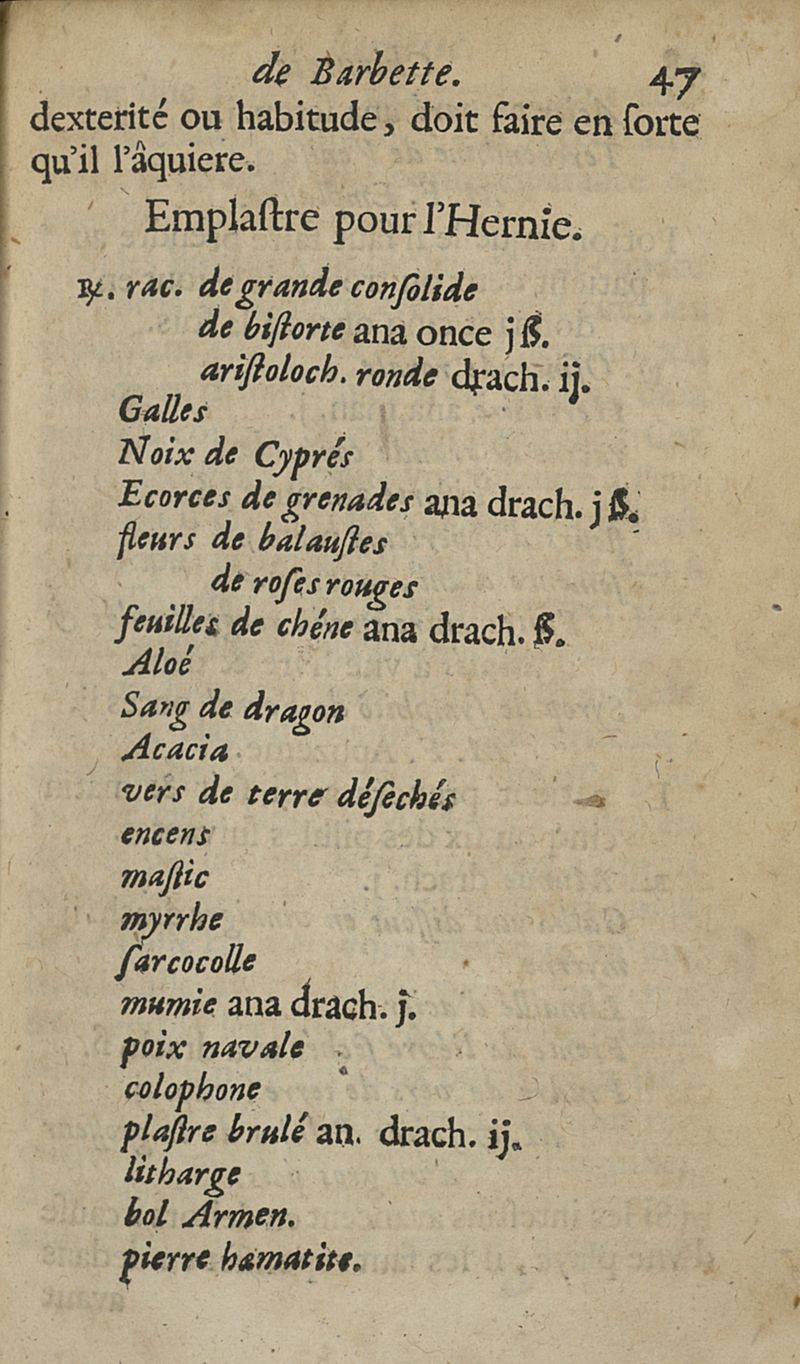 de Barbette. 47
dexterité ou habitude, doit faire en ſorte
qu'il l'âquiere.
Emplaſtre pour l'Hernie.
℞. rac. de grande conſolide
de biſtorte ana once j ß.
ariſtoloch. ronde drach. ij.
Galles
Noix de Cyprés
Ecorces de grenades ana drach. j ß.
fleurs de balauſtes
de roſes rouges
feuilles de chéne ana drach. ß.
Aloé
Sang de dragon
Acacia
vers de terre déſechés
encens
maſtic
myrrhe
ſarcocolle
mumie ana drach. j.
poix navale
colophone
plaſtre brulé an. drach. ij.
litharge
bol Armen.
pierre hæmatite.